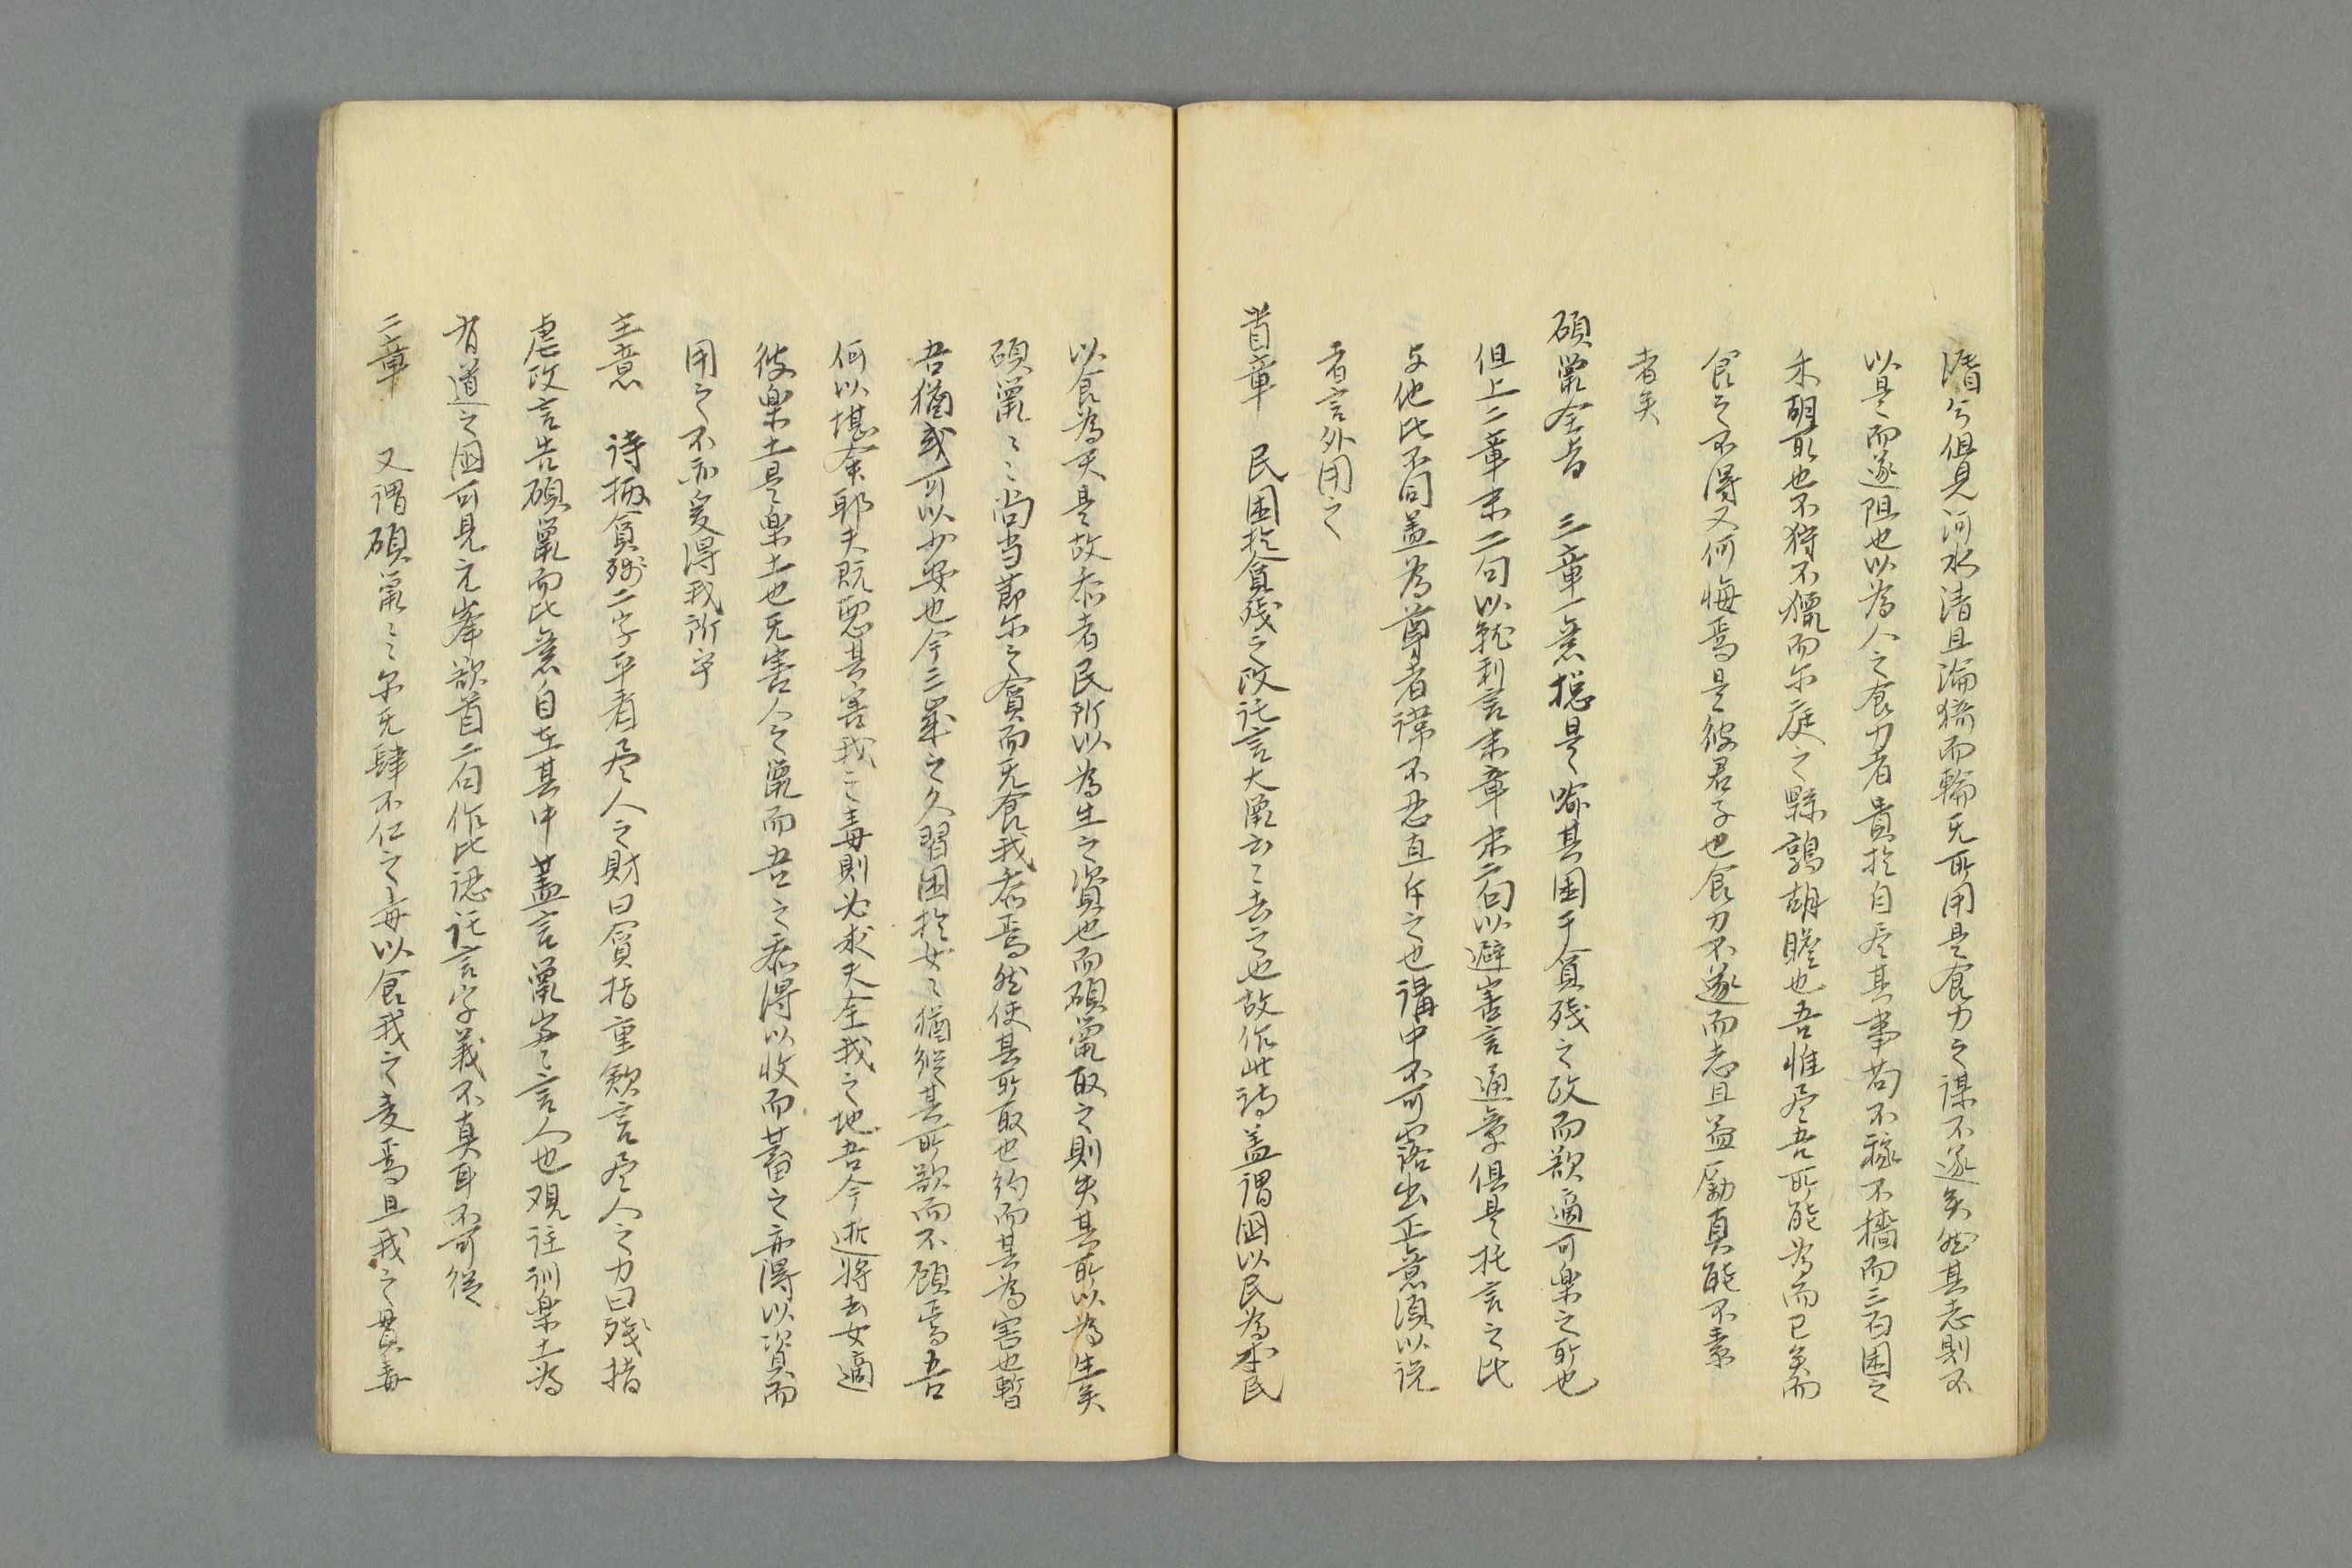 漘兮但見河水清且淪猗而輪无所用是食力之謀不遂矣然其志則不
以是而遂阻也以為人之食力者貴扵自尽其事苟不稼不穡而三百囷之
禾胡取也不狩不獵而尔庭之縣鶉胡瞻也吾惟尽吾所能為而已矣而
食之不得又何悔焉是彼君子也食力不遂而志且益厲真能不素
者矣
碩鼠全旨　三章一意捴是喻其困于貪残之政而欲適可楽之所也
但上二章末二句以就利言末章末二句以避害言通章俱是托言之比
与他比不同盖為尊者諱不忍直斥之也講中不可露出正意須以説
者言外用之
首章　民困扵貪残之政託言大鼠云〻去之也故作此詩盖謂國以民為本民
以食為天是故黍者民所以為生之資也而碩鼠取之則失其所以為生矣
碩鼠〻〻尚当節尔之貪而无食我黍焉然使其所取也約而其為害也暫
吾猶或可以少安也今三嵗之久習困扵女〻猶縱其所欲而不顧焉吾
何以堪奈耶夫既惡其害我〻之毒則必求夫全我之地吾今逝將去女適
彼楽土是楽土也无害人之鼠而吾之黍得以收而蓄之亦得以資而
用之不亦爰得我所乎
主意　詩抦貪残二字平看尽人之財曰貪指重歛言尽人之力曰残指
虐政言告碩鼠而比意自在其中盖言鼠字〻言人也观註訓楽土為
有道之國可見元峯欲首二句作比認託言字義不真耳不可從
二章　又謂碩鼠〻尔无肆不仁之毒以食我之麦焉且我之貫毒